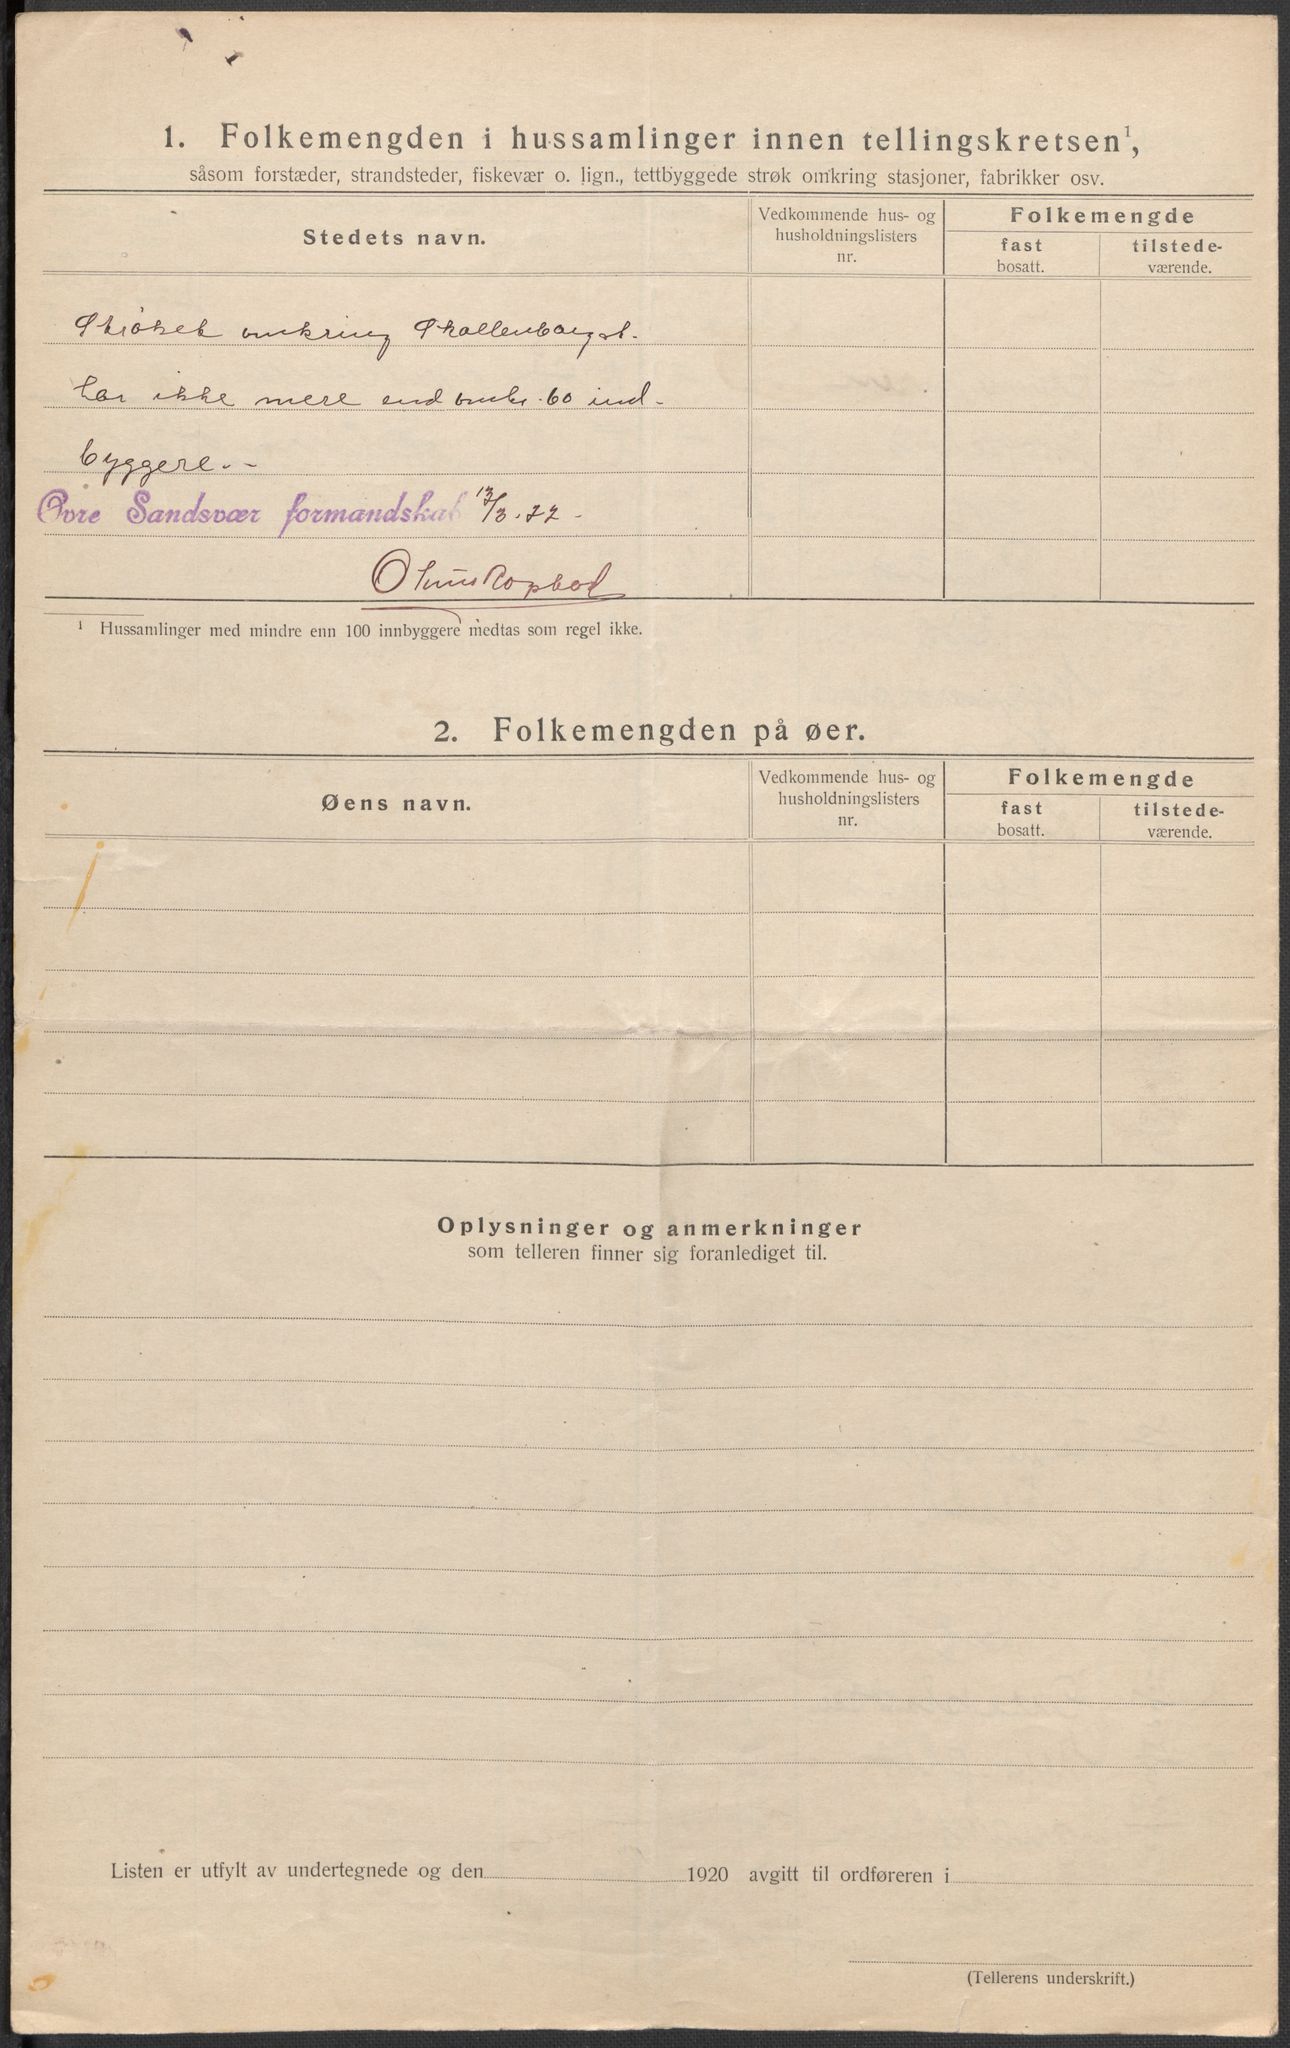 1. Folkemengden i hussamlinger innen tellingskretsen¹,
såsom forstæder, strandsteder, fiskevær o. lign., tettbyggede strøk omkring stasjoner, fabrikker osv.
Stedets navn.
Vedkommende hus- og
husholdningslisters
nr.
Folkemengde
fast
bosatt.
tilstede-
værende.
Strøket omkring Skollenborg st.
har ikke mere end omkr. 60 ind-
byggere. -
Øvre Sandsvær formandskab 13/3.22 -
¹ Hussamlinger med mindre enn 100 innbyggere medtas som regel ikke.
2. Folkemengden på øer.
Øens navn.
Vedkommende hus- og
husholdningslisters
nr.
Folkemengde
fast
bosatt.
tilstede-
værende.
Oplysninger og anmerkninger
som telleren finner sig foranlediget til.
Listen er utfylt av undertegnede og den 1920 avgitt til ordføreren i
(Tellerens underskrift.)